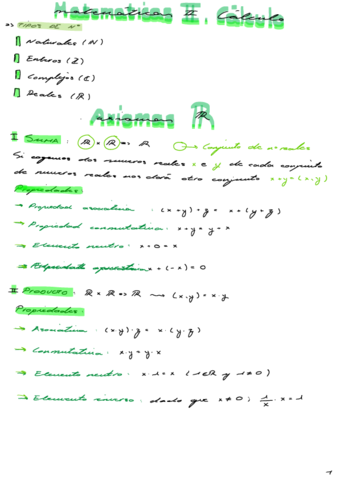 Matematicas II. Cálculo
TIPOS DE Nº
Naturales (N)
Enteros (Z)
Complejos (C)
Reales (R)
Axiomas R
I Suma: R x R => R → Conjunto de nº reales
Si cogemos dos numeros reales x e y de cada conjunto
de numeros reales nos dará otro conjunto x+y=(x,y)
Propiedades
→ Propiedad asociativa: (x+y)+z = x+(y+z)
→ Propiedad conmutativa: x+y=y+x
→ Elemento neutro: x+0=x
→ x+(-x)=0
II Producto: R x R => R → (x,y)=x.y
Propiedades
→ Asociativa: (x.y).z = x.(y.z)
→ Conmutativa: x.y=y.x
→ Elemento neutro: x.1=x (1∈R y 1≠0)
→ Elemento inverso: dado que x≠0; 1/x . x=1
1